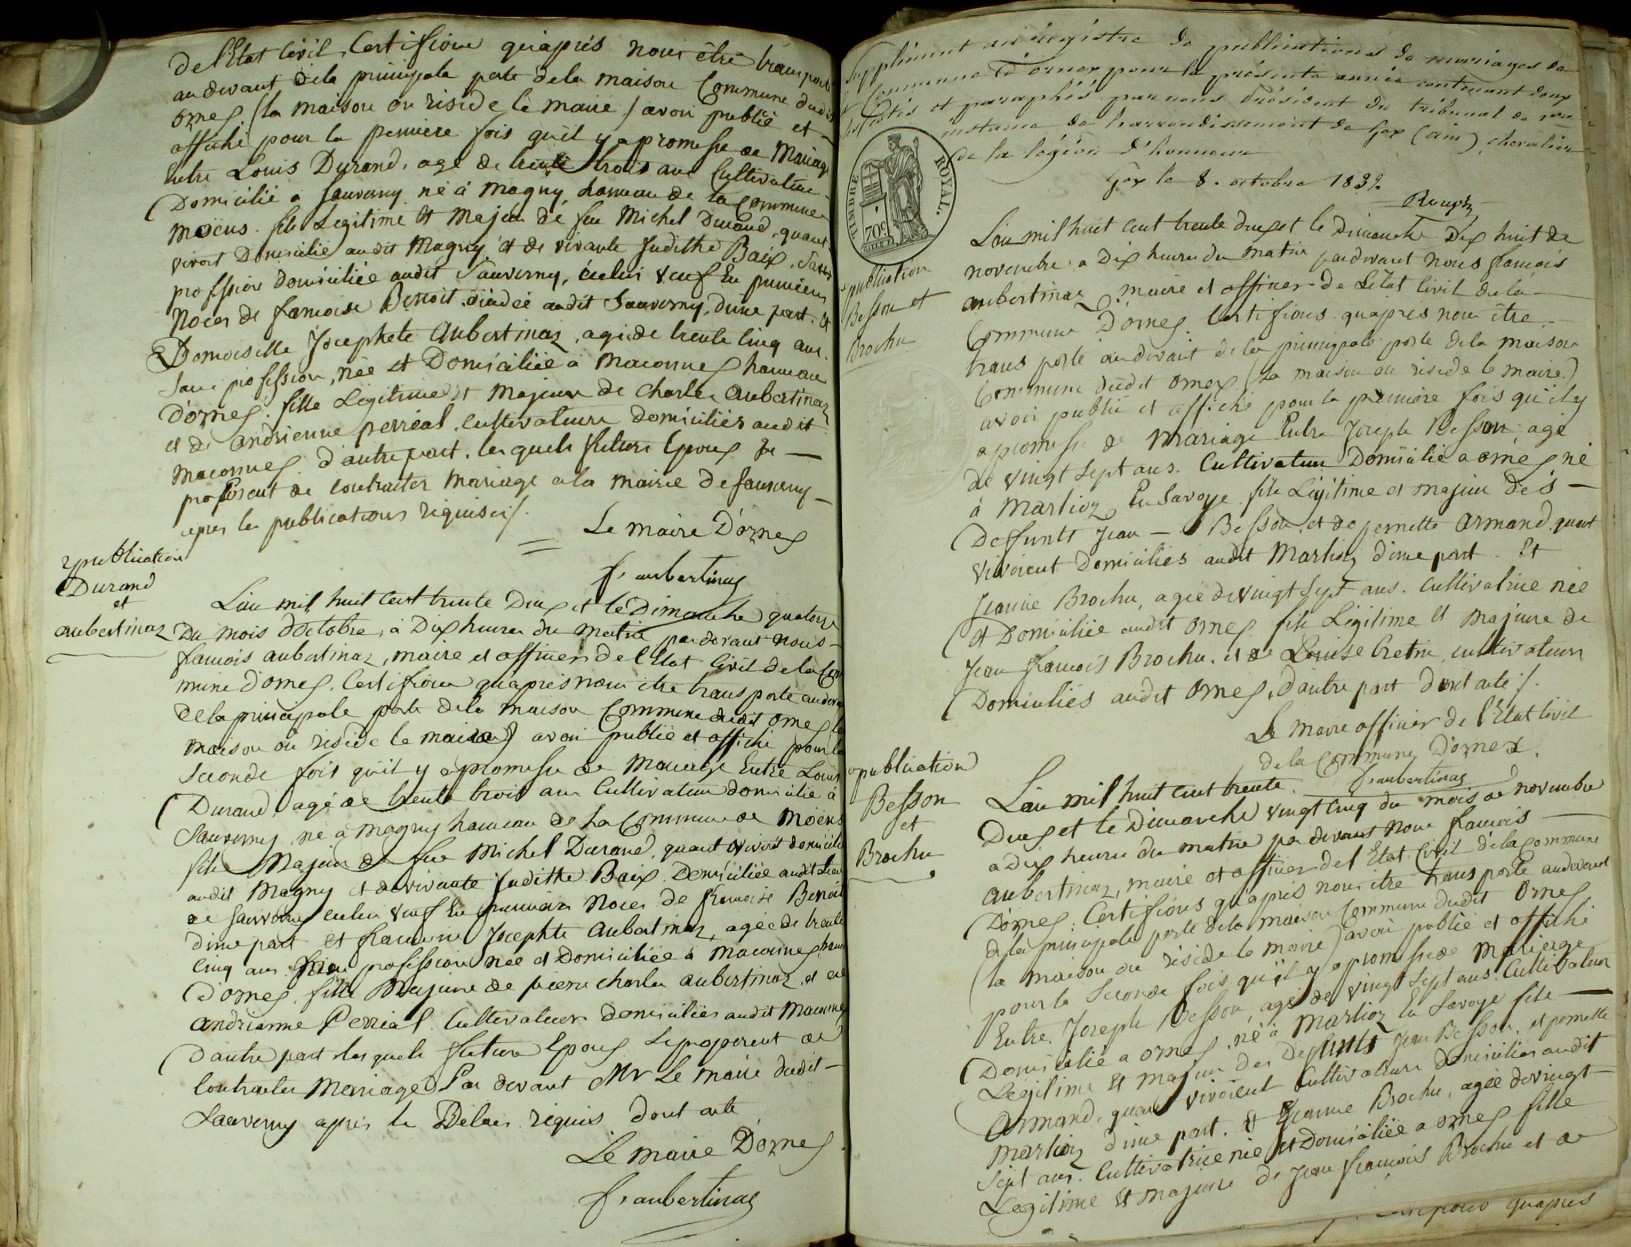 de l'Etat Civil, Certifions qu'après nous être transporté
au devant de la principale porte de la maison Commune dudit
ornex (la maison ou réside le maire) avoir publié et
affiché pour la première fois qu'il y a promesse de Mariage
entre Louis Durand, agé de trente trois ans Cultivateur
Domicilié a Sauverny né à Magny, hameau de la Commune
moëns. fils Légitime et Majeur de feu Michel Durand, quand
vivoit Domicilié audit Magny et de vivante Judithe Baix, sans
profession domiciliée audit Sauverny, icelui veuf En premieres
Noces de francoise Benoit décédée audit Sauverny, d'une part. et
Demoiselle Josephete Aubertinaz, agée de trente cinq ans.
Sans profession, née et Domiciliée à Maconnex hameau
D'ornex. fille Légitime et Majeure de Charles Aubertinaz
et de andrienne perréal, Cultivateurs domiciliés audit
Maconnex d'autre part. les quels futurs Epoux se
proposent de contracter mariage a la mairie de Sauverny
après les publications requises /.
Le maire D'ornex
f. aubertinaz
2 publication
Durand
et
aubertinaz
L'an mil huit Cent trente Deux et le Dimanche quatorze
Du mois d'octobre, à Dix heures du matin par devant nous
francois aubertinaz, maire et officier de l'Etat Civil de la Com
mune d'ornex. Certifions qu'après nous être transporté au devant
de la principale porte de la maison Commune dudit ornex (la
maison où réside le maire) avoir publié et affiché pour la
Seconde fois qu'il y a promesse de Mariage Entre Louis
Durand, agé de trente trois ans Cultivateur domicilié à
Sauverny né à Magny hameau de la Commune de Moëns
fils Majeur de feu Michel Durand, quand vivoit domicilié
audit Magny et de vivante Juditthe Baix Domiciliée audit lieu
de Sauverny icelui veuf En premieres Noces de francoise Benoit
d'une part et Josephte Aubertinaz, agée de trente
cinq ans. sans profession née et Domiciliée à Maconnex ham
d'ornex, fille Majeure de pierre charles aubertinaz, et de
andrienne Perréal. Cultivateurs domiciliés audit Maconnex
D'autre part. les quels futurs Epoux se proposent de
Contracter Mariage Par devant Mr Le Maire dudit
Sauverny après les Délais requis. Dont acte
Le maire D'ornex
f. aubertinaz
Supplément au régistre de publications de mariages de
la Commune d'ornex pour la présente année contenant deux
feuillets et paraphés par nous Président du tribunal de 1re
instance de l'arrondissement de Gex (ain), chevalier
de la légion d'honneur
Gex le 8. octobre 1832
TIMBRE ROYAL.
70c
1 publication
Besson et
Brochu
L'an mil huit Cent trente deux et le Dimanche Dix huit de
novembre a Dix heures du matin par devant nous francois
aubertinaz, maire et officier de L'état Civil de la
Commune D'ornex. Certifions qu'après nous être
transporté au devant de la principale porte de la maison
Commune dudit ornex (la maison ou réside le maire)
avoir publié et affiché pour la première fois qu'il y
a promesse de Mariage Entre Joseph Besson, agé
de Vingt Sept ans. Cultivateur Domicilié a ornex né
à Marlioz En Savoye fils Légitime et majeur des
Deffunts Jean Besson et de pernette Armand, quand
vivoient Domiciliés audit Marlioz d'une part. Et
Jeanne Brochu, agée de vingt Sept ans. Cultivatrice née
et Domiciliée audit ornex fille Légitime et Majeure de
Jean francois Brochu. et de Louise tretin, cultivateurs
Domiciliés audit Ornex, d'autre part dont acte /.
Le Maire officier de l'Etat Civil
de la Commune D'ornex.
f. aubertinaz
2 publication
Besson
et
Brochu
L'an mil huit Cent trente
Deux et le Dimanche vingt Cinq du mois de novembre
a dix heures du matin par devant nous francois
aubertinaz, maire et officier de l'Etat Civil de la commune
D'ornex. Certifions qu'après nous être transporté au devant
de la principale porte de la maison Commune dudit Ornex
(la maison ou réside le maire) avoir publié et affiché
pour la Seconde fois qu'il y a promesse de Mariage
Entre Joseph Besson, agé de vingt Sept ans. Cultivateur
Domicilié a ornex né à Marlioz En Savoye fils
Légitime et Majeur des Defunts Jean Besson, et pernette
Armand, quand vivoient Cultivateurs domiciliés audit
Marlioz d'une part. et Jeanne Brochu, agée de vingt
Sept ans. Cultivatrice née et Domiciliée a ornex fille
Légitime et majeure de Jean francois Brochu et de
qu'après